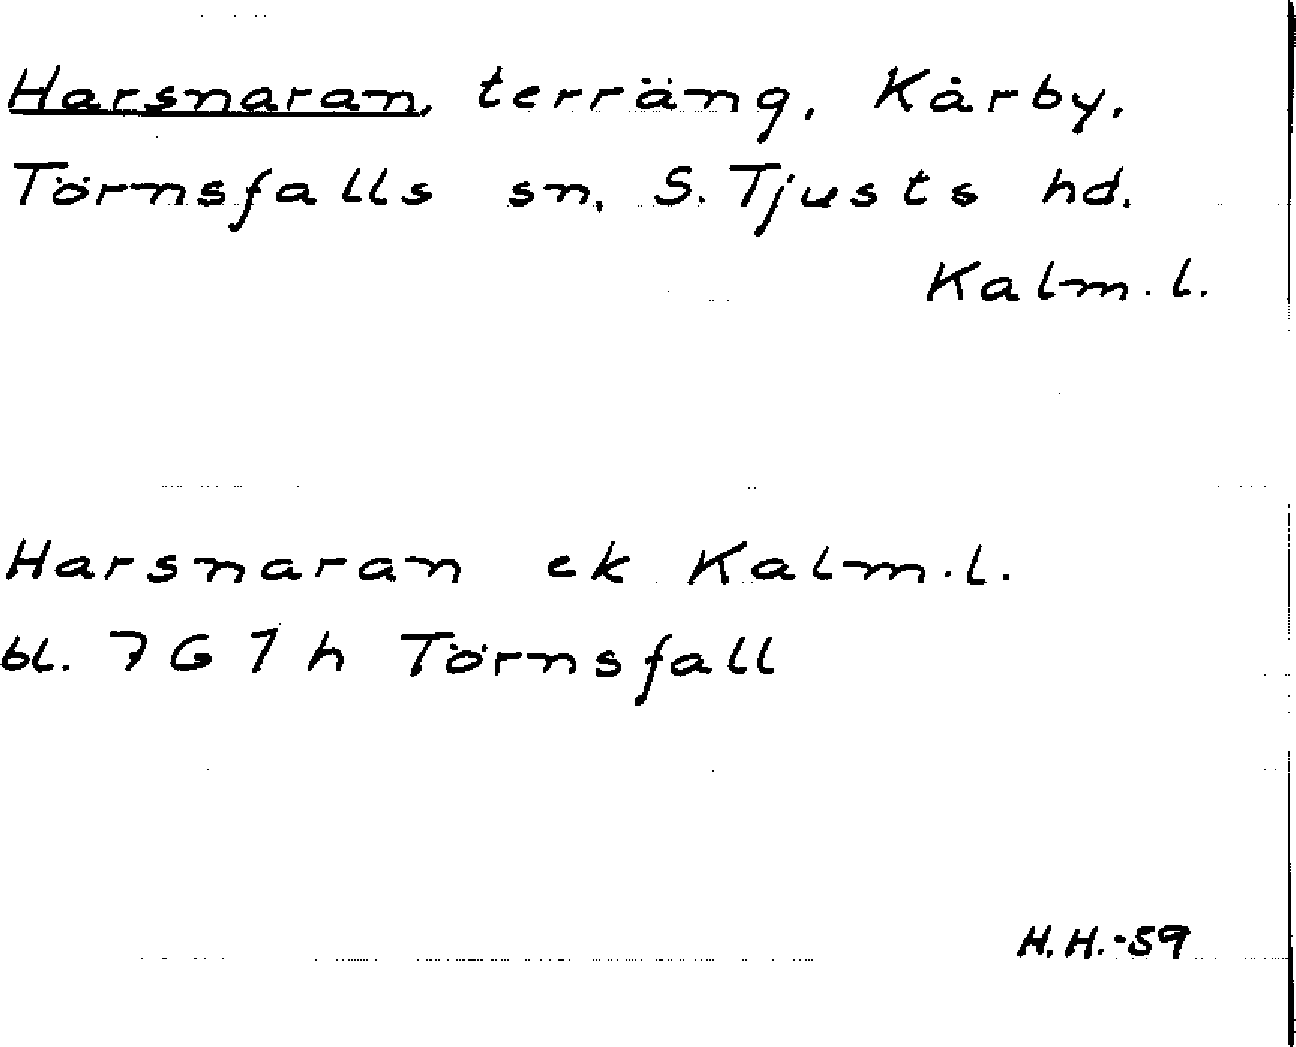 Harsnaran, terräng, Kårby,
Törnsfalls sn, S. Tjusts hd.
Kalm. l.
Harsnaran ek Kalm. l.
bl. 7 G 1 h Törnsfall
H. H. -59